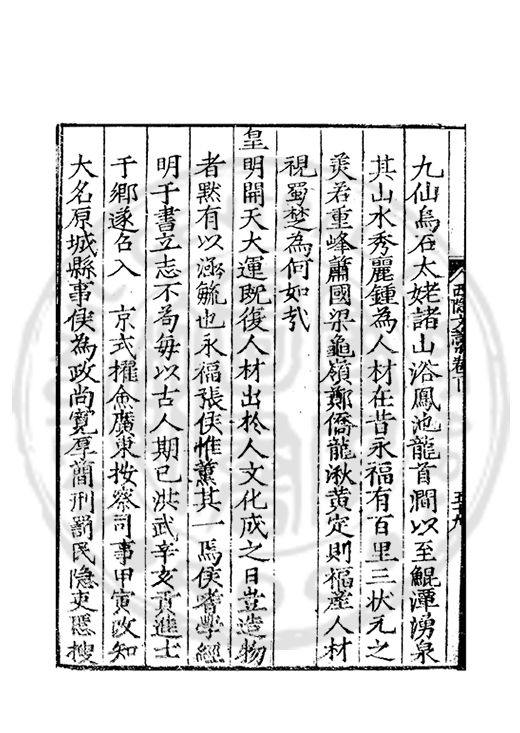 九仙烏石太姥諸山浴鳳池龍首澗以至鯤潭湧泉
其山水秀麗鍾為人材在昔永福有百里三狀元之
羙若重峰蕭國梁龜嶺鄭僑龍湫黄定則福産人材
視蜀楚為何如㢤
皇明開天大運既復人材出扵人文化成之日豈造物
者黙有以涵毓也永福張侯惟薫其一焉侯嗜學經
明于書立志不苟毎以古人期已洪武辛亥貢進士
于鄉遂召入　京式擢僉廣東按察司事甲寅改知
大名原城縣事侯為政尚寛厚簡刑罰民隐吏慝搜
文
卷下
五十九